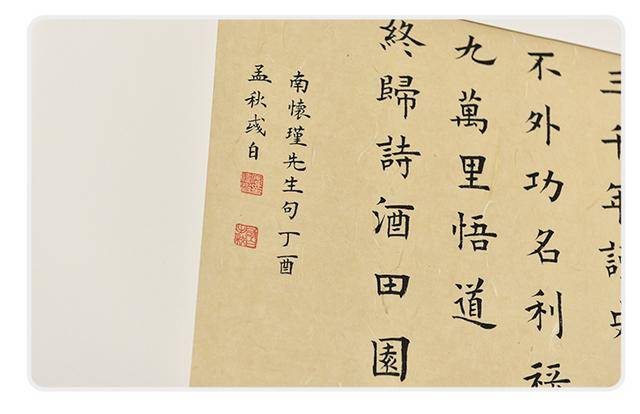 三千年讀史
不外功名利祿
九萬里悟道
終歸詩酒田園
南懷瑾先生句丁酉
孟秋彧白